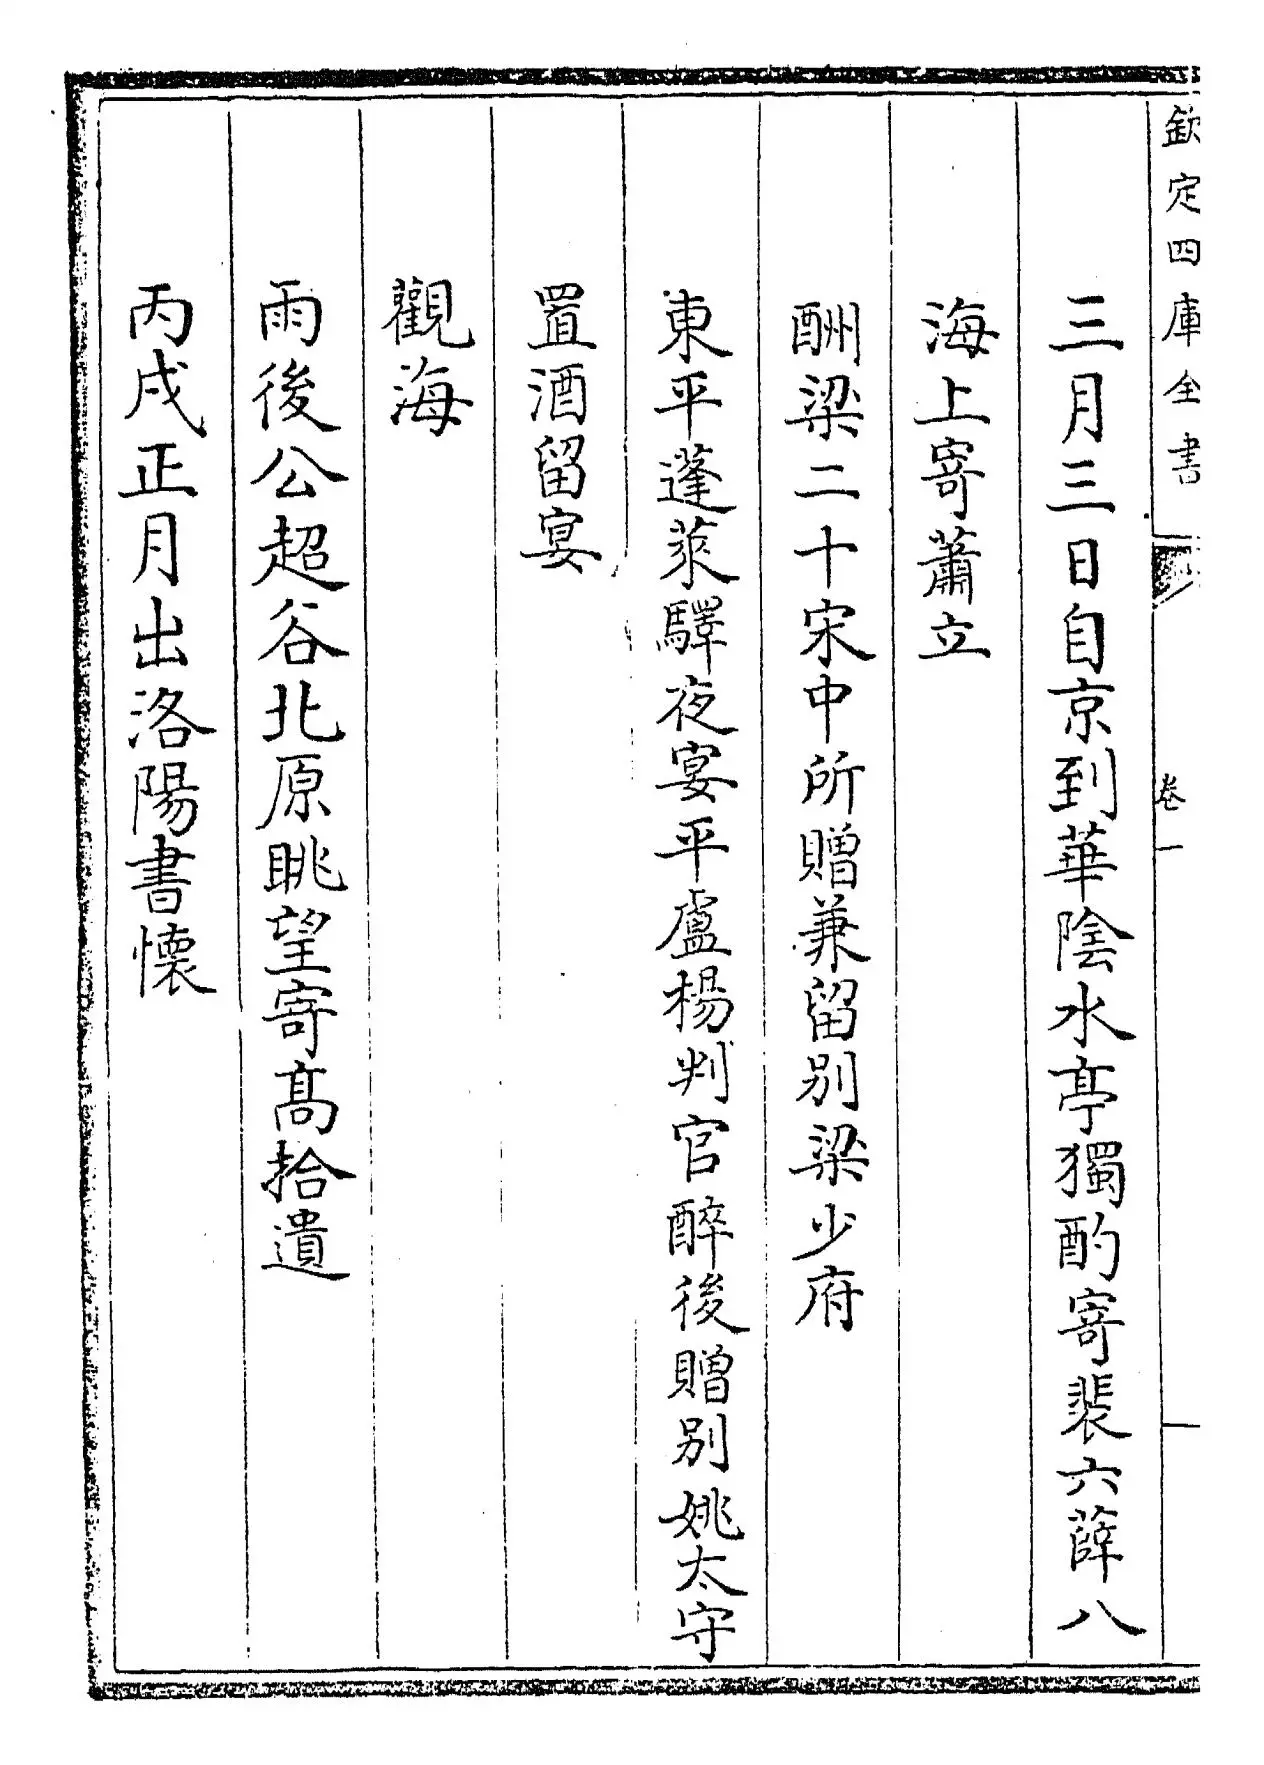 欽定四庫全書
卷一
三月三日自京到華陰水亭獨酌寄裴六薛八
海上寄蕭立
酬梁二十宋中所贈兼留別梁少府
東平蓬萊驛夜宴平盧楊判官醉後贈別姚太守
置酒留宴
觀海
雨後公超谷北原眺望寄高拾遺
丙戌正月出洛陽書懷